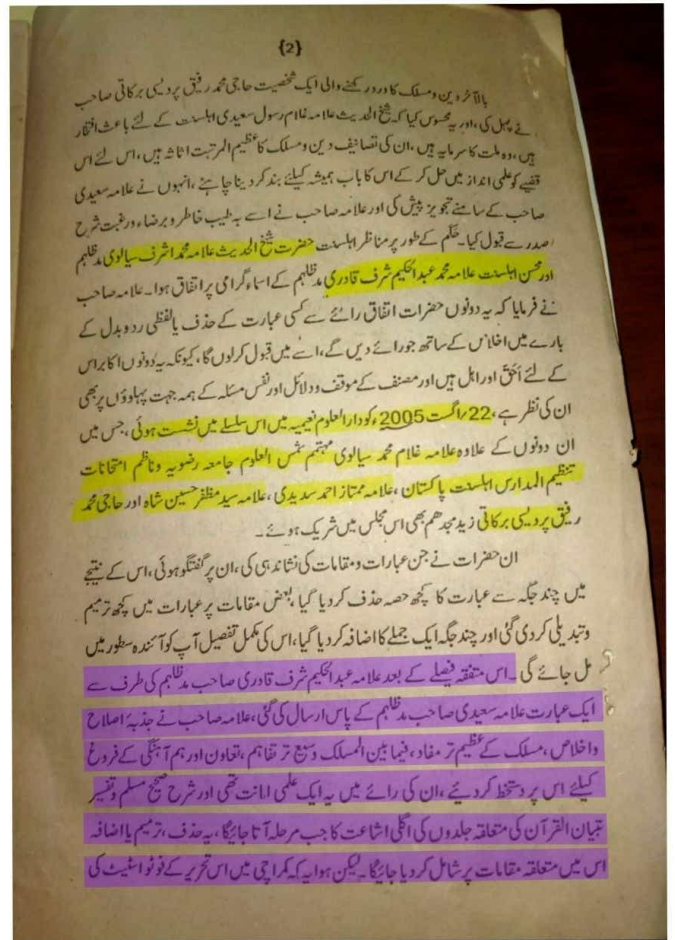 {2}
بالآخر دین و مسلک کا درد رکھنے والی ایک شخصیت حاجی محمد رفیق پردیسی برکاتی صاحب
نے پہل کی، اور یہ محسوس کیا کہ شیخ الحدیث علامہ غلام رسول سعیدی اہلسنت کے لئے باعث افتخار
ہیں، وہ ملت کا سرمایہ ہیں، ان کی تصانیف دین و مسلک کا عظیم المرتبت اثاثہ ہیں، اس لئے اس
قضیے کو علمی انداز میں حل کر کے اس کا باب ہمیشہ کیلئے بند کر دینا چاہئے، انہوں نے علامہ سعیدی
صاحب کے سامنے تجویز پیش کی اور علامہ صاحب نے اسے بہ طیب خاطر و برضاء و رغبت شرح
صدر سے قبول کیا۔ حَکَم کے طور پر مناظر اہلسنت حضرت شیخ الحدیث علامہ محمد اشرف سیالوی مدظلہم
اور محسن اہلسنت علامہ محمد عبدالحکیم شرف قادری مدظلہم کے اسماء گرامی پر اتفاق ہوا۔ علامہ صاحب
نے فرمایا کہ یہ دونوں حضرات اتفاق رائے سے کسی عبارت کے حذف یا لفظی ردوبدل کے
بارے میں اخلاص کے ساتھ جو رائے دیں گے، اسے میں قبول کرلوں گا، کیونکہ یہ دونوں اکابر اس
کے لئے اَحَق اور اہل ہیں اور مصنف کے موقف و دلائل اور نفس مسئلہ کے ہمہ جہت پہلوؤں پر بھی
ان کی نظر ہے، 22/اگست 2005ء کو دارالعلوم نعیمیہ میں اس سلسلے میں نشست ہوئی، جس میں
ان دونوں کے علاوہ علامہ غلام محمد سیالوی مہتمم شمس العلوم جامعہ رضویہ و ناظم امتحانات
تنظیم المدارس اہلسنت پاکستان، علامہ ممتاز احمد سدیدی، علامہ سید مظفر حسین شاہ اور حاجی محمد
رفیق پردیسی برکاتی زید مجدھم بھی اس مجلس میں شریک ہوئے۔
ان حضرات نے جن عبارات و مقامات کی نشاندہی کی، ان پر گفتگو ہوئی، اس کے نتیجے
میں چند جگہ سے عبارت کا کچھ حصہ حذف کر دیا گیا، بعض مقامات پر عبارات میں کچھ ترمیم
و تبدیلی کر دی گئی اور چند جگہ ایک جملے کا اضافہ کر دیا گیا، اس کی مکمل تفصیل آپ کو آئندہ سطور میں
مل جائے گی۔ اس متفقہ فیصلے کے بعد علامہ عبدالحکیم شرف قادری صاحب مدظلہم کی طرف سے
ایک عبارت علامہ سعیدی صاحب مدظلہم کے پاس ارسال کی گئی، علامہ صاحب نے جذبۂ اصلاح
و اخلاص، مسلک کے عظیم تر مفاد، فیما بین المسلک وسیع تر تفاہم، تعاون اور ہم آہنگی کے فروغ
کیلئے اس پر دستخط کردئیے، ان کی رائے میں یہ ایک علمی امانت تھی اور شرح صحیح مسلم و تفسیر
تبیان القرآن کی متعلقہ جلدوں کی اگلی اشاعت کا جب مرحلہ آتا جائیگا، یہ حذف، ترمیم یا اضافہ
اس میں متعلقہ مقامات پر شامل کر دیا جائیگا۔ لیکن ہوا یہ کہ کراچی میں اس تحریر کے فوٹو اسٹیٹ کی